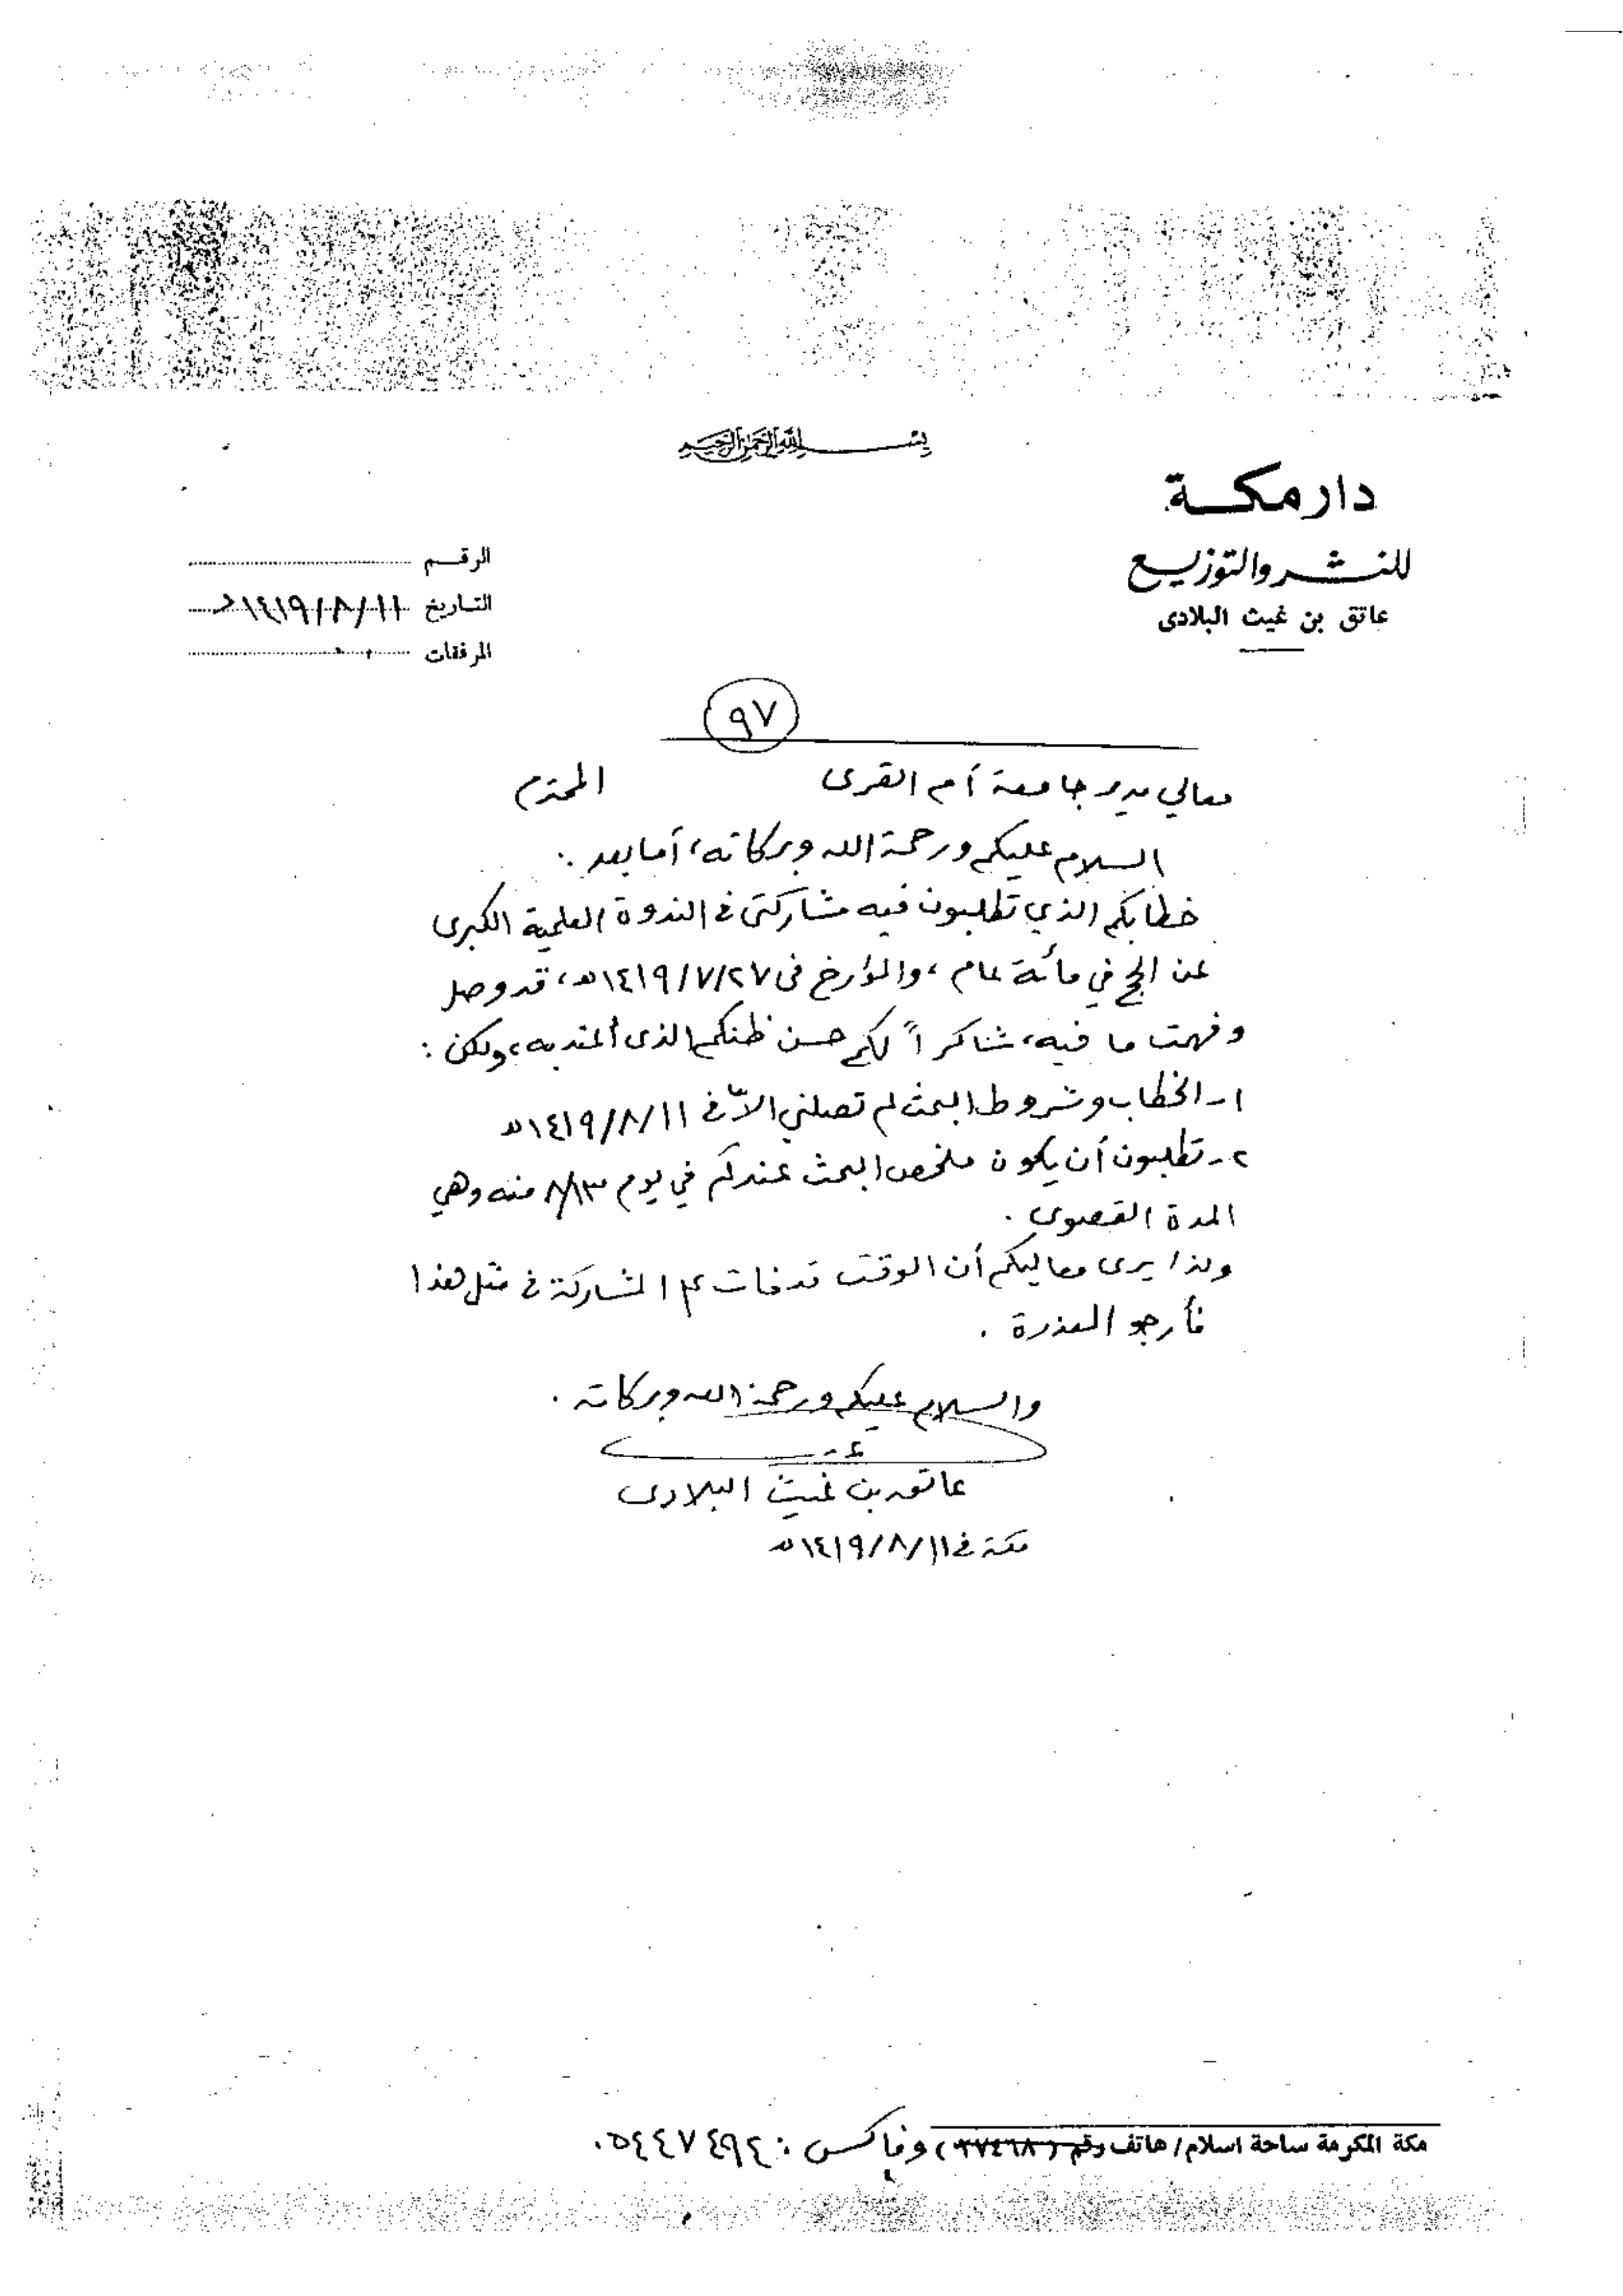 بسم الله الرحمن الرحيم
دار مكة
للنشر والتوزيع
عاتق بن غيث البلادى
الرقم
التاريخ ١٤١٩/٨/١١هـ
المرفقات
٩٧
معالي مدير جامعة أم القرى المحترم
السلام عليكم ورحمة الله وبركاته، أما بعد :
خطابكم الذي تطلبون فيه مشاركتي في الندوة العلمية الكبرى
عن الحج في مائة عام، والمؤرخ في ١٤١٩/٧/٢٧هـ، قد وصل
وفهمت ما فيه، شاكراً لكم حسن ظنكم الذى أعتد به، ولكن :
١- الخطاب وشروط البحث لم تصلني إلاّ في ١٤١٩/٨/١١هـ
٢- تطلبون أن يكون ملخص البحث عندكم في يوم ٨/١٣ منه وهي
المدة القصوى .
ولذا يرى معاليكم أن الوقت قد فات على المشاركة في مثل هذا
فأرجو المعذرة .
والسلام عليكم ورحمة الله وبركاته .
عاتق بن غيث البلادى
مكة في ١٤١٩/٨/١١هـ
مكة المكرمة ساحة اسلام/ هاتف رقم (٣٧٤٦٨) وفاكس : ٥٤٤٧٤٩٢٠